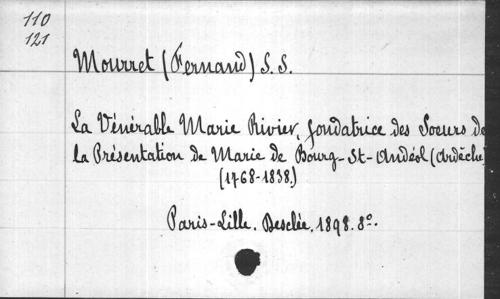 110
121
Mourret (Fernand) S. S.
La Vénérable Marie Rivier, fondatrice des Soeurs de
la Présentation de Marie de Bourg-St-Andéol (Ardèche)
(1768-1838.)
Paris-Lille. Desclée. 1898. 8°.